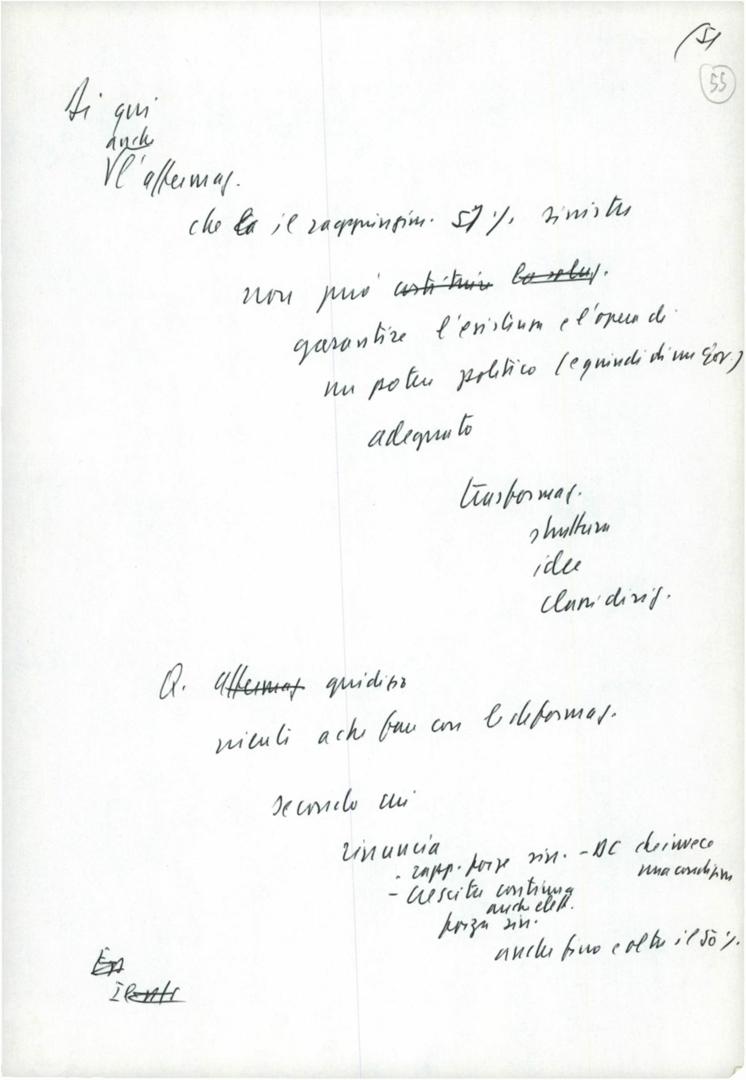 55
Di qui
anche
l'affermaz.
che la il raggiungim. 51% sinistre
non può costituire la soluz.
garantire l'esistenza e l'opera di
un potere politico (e quindi di un Gov.)
adeguato
trasformaz.
struttura
idee
classi dirig.
Q. affermaz giudizio
niente a che fare con le deformaz.
secondo cui
rinuncia
- rapp. forze sin. - DC che invece
una condizione
- Crescita continua
anche elett.
forza sin.
anche fino e oltre il 50%.